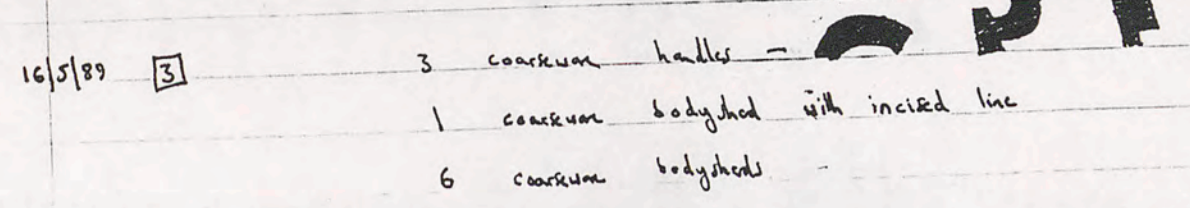 16/5/89 [3] 3 coarseware handles -
1 coarseware bodysherd with incised line
6 coarseware bodysherds -